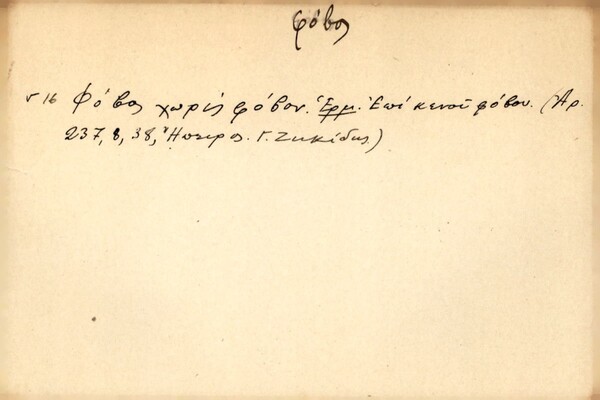 φόβος
16 Φόβος χωρίς φόβον. Ἑρμ. Ἐπί κενοῦ φόβου. (Ἀρ.
237, 8, 38, Ἤπειρος. Γ. Ζηκίδης)